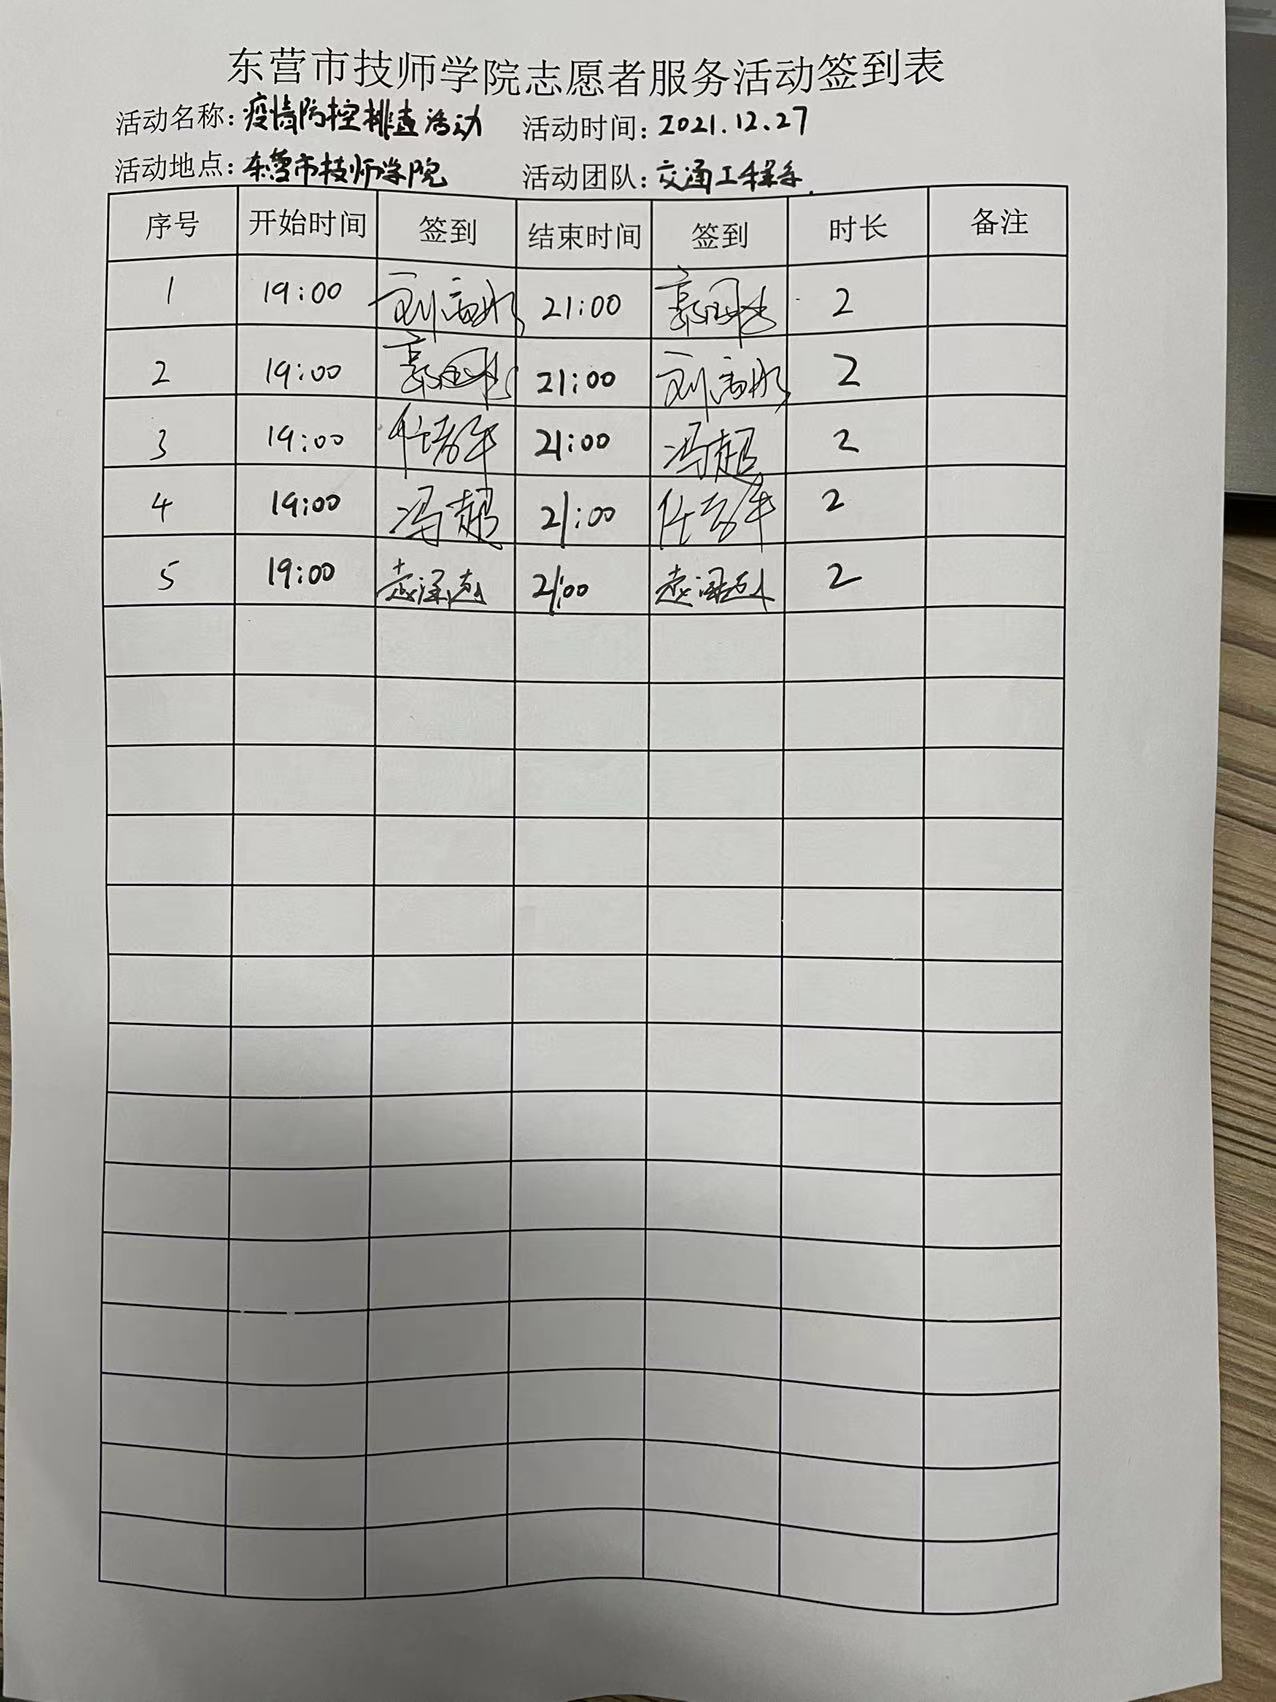 东营市技师学院志愿者服务活动签到表
活动名称：疫情防控排查活动 活动时间：2021.12.27
活动地点：东营市技师学院 活动团队：交通工程系
序号 开始时间 签到 结束时间 签到 时长 备注
1 19:00 21:00 2
2 19:00 21:00 2
3 19:00 21:00 冯超 2
4 19:00 冯超 21:00 2
5 19:00 21:00 2